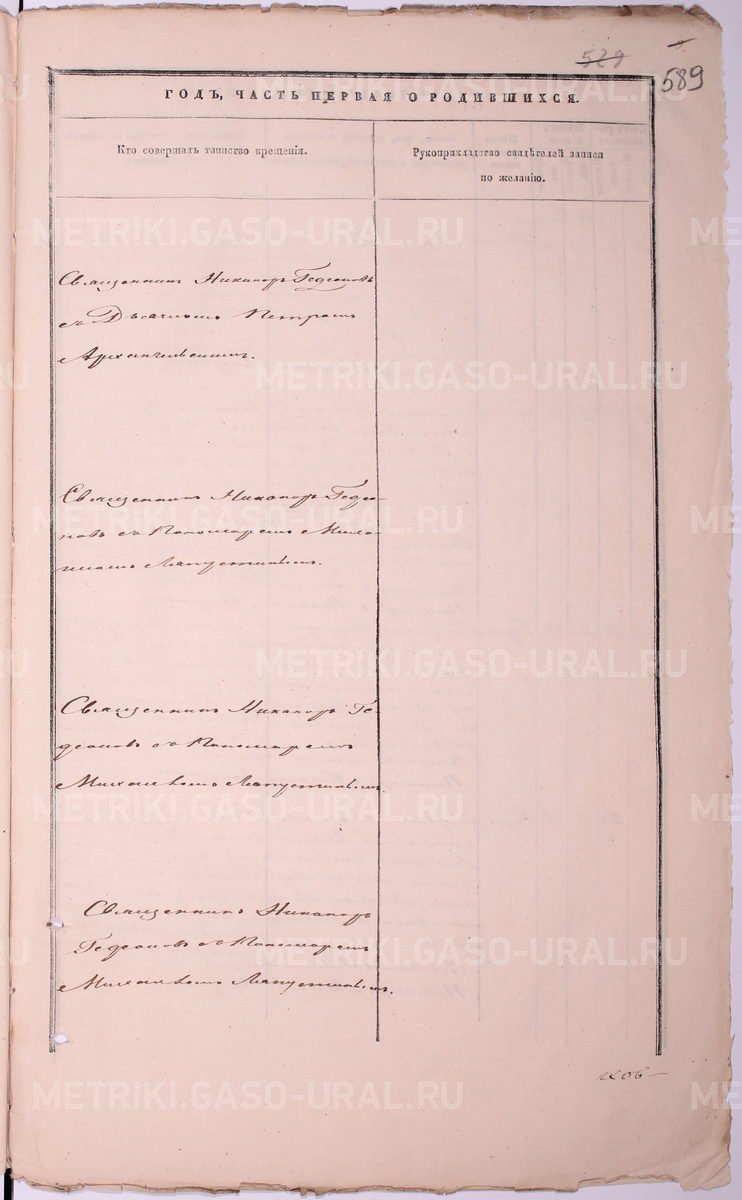 529
589
ГОДЪ, ЧАСТЬ ПЕРВАЯ О РОДИВШИХСЯ.
Кто совершалъ таинство крещенія.
Рукоприкладство свидѣтелей записи
по желанію.
Священникъ Никаноръ Гедеоновъ
съ Дьячкомъ Петромъ
Архангельскимъ.
Священникъ Никаноръ Гедео-
новъ съ Пономаремъ Миха-
иломъ Лапустинымъ.
Священникъ Никаноръ Ге-
деоновъ съ Пономаремъ
Михаиломъ Лапустинымъ.
Священникъ Никаноръ
Гедеоновъ съ Пономаремъ
Михаиломъ Лапустинымъ.
METRIKI.GASO-URAL.RU